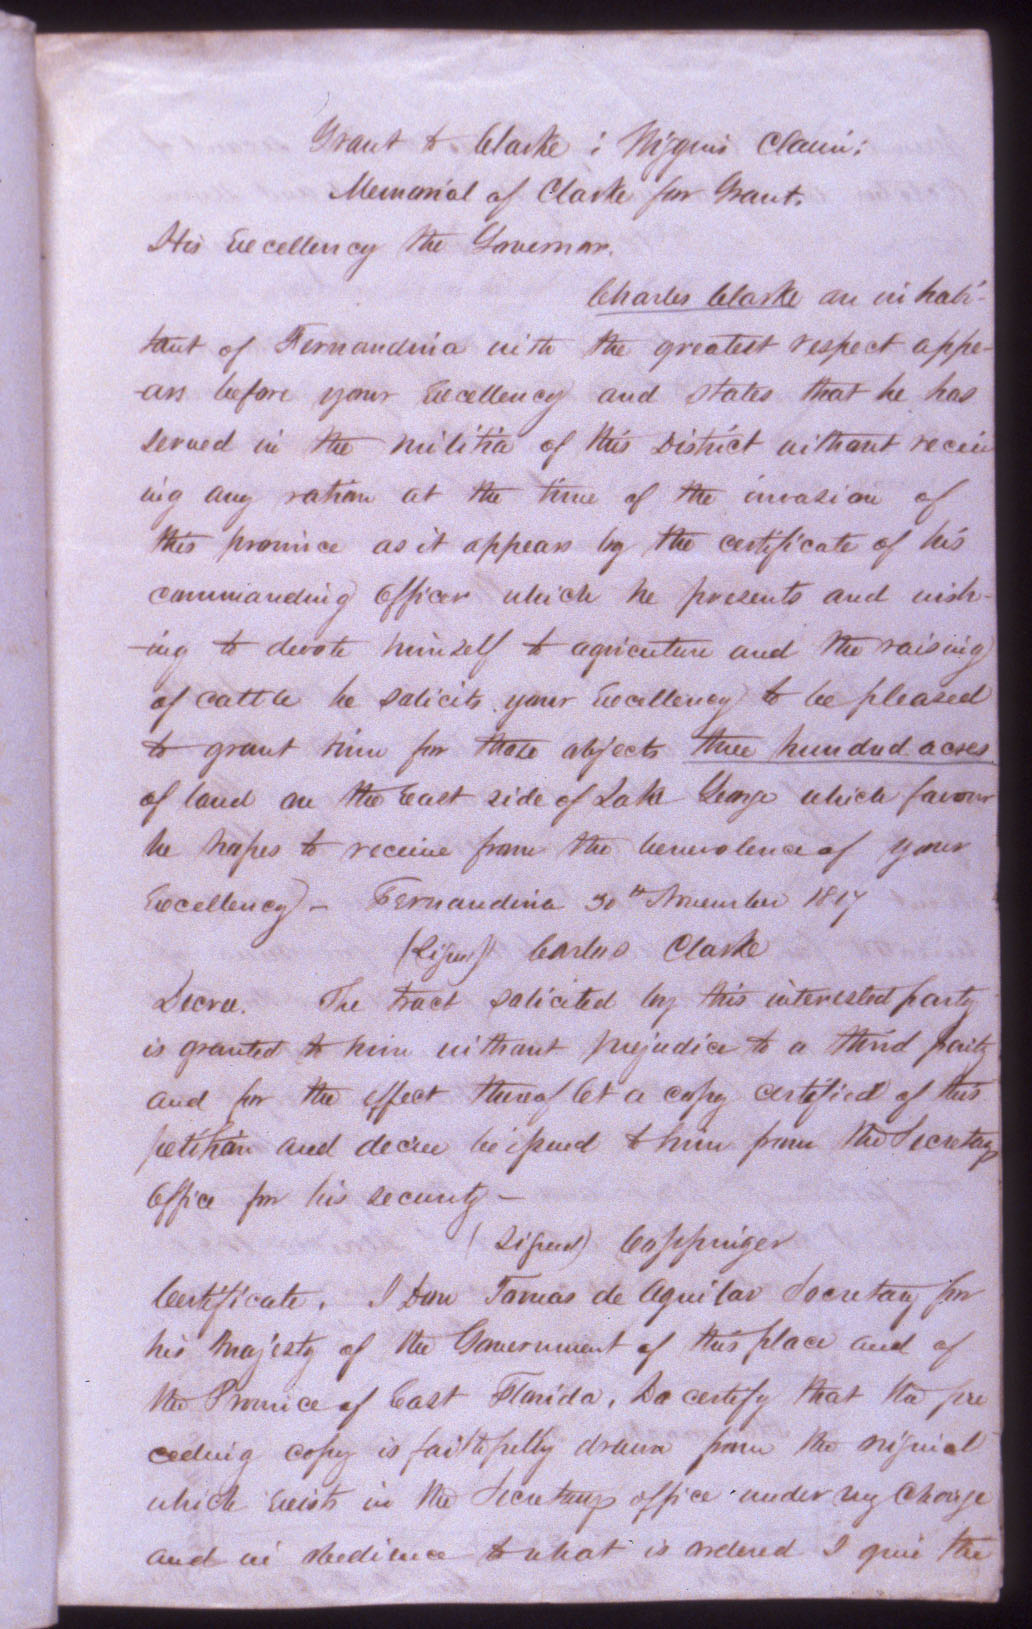 Grant to Clarke : Wiggins Claim :
Memorial of Clarke for Grant.
His Excellency the Governor.
Charles Clarke an inhabi-
tant of Fernandina with the greatest respect appe-
-ars before your Excellency and states that he has
served in the militia of this District without receiv
ing any ration at the time of the invasion of
this province as it appears by the certificate of his
commanding Officer which he presents and wish-
-ing to devote himself to agriculture and the raising
of cattle he solicits your Excellency to be pleased
to grant him for those objects three hundred acres
of land on the East side of Lake George which favour
he hopes to receive from the benevolence of your
Excellency) - Fernandina 30th November 1817
(Signed) Carlos Clarke
Decree. The tract solicited by this interested party
is granted to him without prejudice to a third party
and for the effect thereof let a copy certified of this
petition and decree be issued to him from the Secretarys
Office for his security -
(Signed) Coppinger
Certificate. I Don Tomas de Aguilar Secretary for
his Majesty of the Government of this place and of
the Province of East Florida, Do certify that the pre
ceding copy is faithfully drawn from the original
which exists in the Secretarys office under my Charge
and in obedience to what is ordered I give the